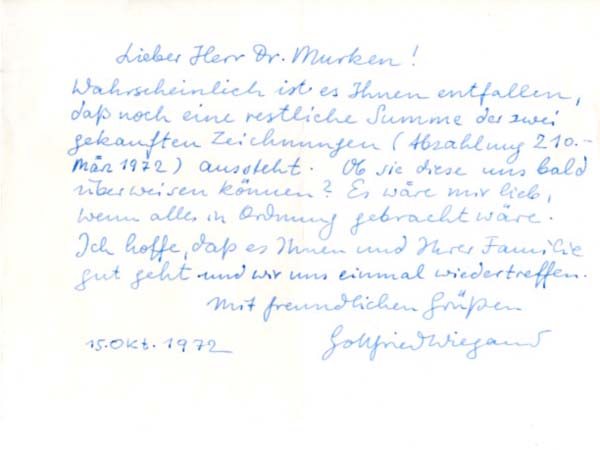 Lieber Herr Dr. Murken!
Wahrscheinlich ist es Ihnen entfallen,
daß noch eine restliche Summe der zwei
gekauften Zeichnungen (Abzahlung 210.-
März 1972) aussteht. Ob sie diese uns bald
überweisen können? Es wäre mir lieb,
wenn alles in Ordnung gebracht wäre.
Ich hoffe, daß es Ihnen und Ihrer Familie
gut geht und wir uns einmal wiedertreffen.
Mit freundlichen Grüßen
15. Okt. 1972 Gottfried Wiegand